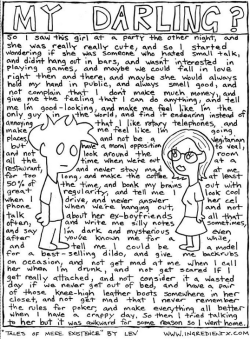 MY DARLING?
So I saw this girl at a party the other night, and
she was really really cute, and so I started
wondering if she was someone who hated small talk,
and didn't hang out in bars, and wasn't interested in
playing games, and maybe we could fall in love
right then and there, and maybe she would always
hold my hand in public, and always smell good, and
not complain that I don't make much money, and
give me the feeling that I can do anything, and tell
me I'm good-looking, and make me feel like I'm the
only guy in the world, and find it endearing instead of
annoying that I like rotary telephones, and
make me feel like I'm going
places, and not be a vegetarian
but have a moral opposition to
and not look around the room
all the time when we're out at
restaurants and never stay mad at me
for too long, and make the coffee at least
50% of the time, and bonk my brains out with
great regularity, and tell me I look cool
when I drive, and never answer her cell
phone when we're hanging out, and not
talk about her ex-boyfriends all the time,
often, and write me silly notes sometimes,
and say I'm dark and mysterious even
after you've known me for a while,
and tell me I could be a model
for a best-selling dildo, and give me backrubs
on occasion, and not get mad at me when I call
her when I'm drunk, and not get scared if I
get really attached, and not consider it a wasted
day if we never get out of bed, and have a pair
of those knee-high leather boots somewhere in her
closet, and not get mad that I never remember
the rules for poker, and make everything all better
when I have a crappy day. So then I tried talking
to her but it was awkward for some reason so I went home.
TALES OF MERE EXISTENCE BY LEV WWW.INGREDIENTX.COM